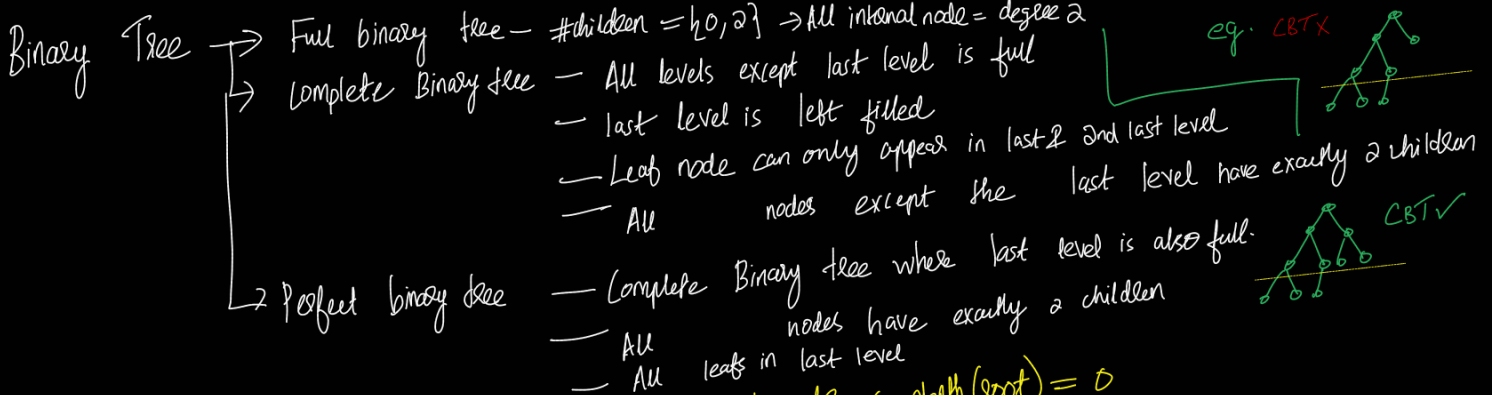 Binary Tree → Full binary tree – #children = {0,2} → All internal node = degree 2
→ Complete Binary tree – All levels except last level is full
– last level is left filled
– Leaf node can only appear in last & 2nd last level
– All nodes except the last level have exactly 2 children
→ Perfect binary tree – Complete Binary tree where last level is also full.
– All nodes have exactly 2 children
– All leafs in last level
depth(root) = 0
eg. CBT X
CBT ✓